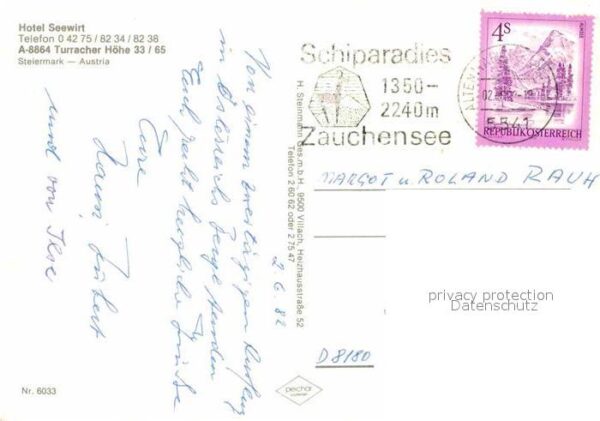 Hotel Seewirt
Telefon 0 42 75 / 82 34 / 82 38
A-8864 Turracher Höhe 33 / 65
Steiermark — Austria
Von einem zweitägigen Ausflug
in Österreichs Berge senden
Euch recht herzliche Grüße
Eure
und von Ilse
2.6.82
Nr. 6033
H. Steinmann Ges.m.b.H., 9500 Villach, Heizhausstraße 52
Telefon 2 60 62 oder 2 75 47
Schiparadies
1350–
2240m
Zauchensee
5541
4S
REPUBLIK ÖSTERREICH
MARGOT u. ROLAND RAUH
privacy protection
Datenschutz
D 8180